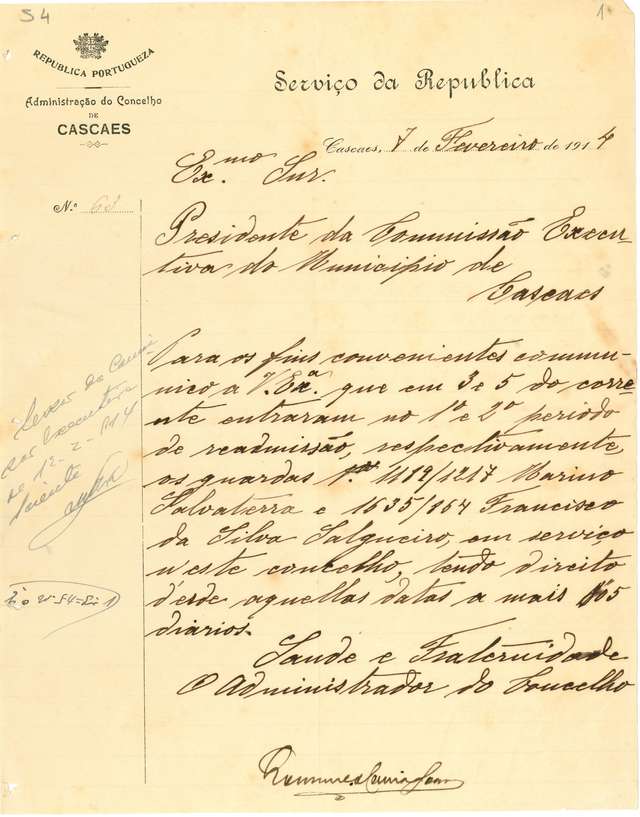 54
1
REPUBLICA PORTUGUEZA
Administração do Concelho
DE
CASCAES
Serviço da Republica
Cascaes, 7 de Fevereiro de 1914
Ex.mo Snr.
N.º 63
Presidente da Commissão Execu-
tiva do Municipio de
Cascaes
Para os fins convenientes commu-
nico a V. Ex.ª que em 3 e 5 do corre-
nte entraram no 1º e 2º periodo
de readmissão, respectivamente,
os guardas 1182/1217 Marino
Salvaterra e 1635/164 Francisco
da Silva Salgueiro, em serviço
n'este concelho, tendo direito
d'esde aquellas datas a mais 05
diarios.
Saude e Fraternidade
O Administrador do Concelho
de 12-2-914